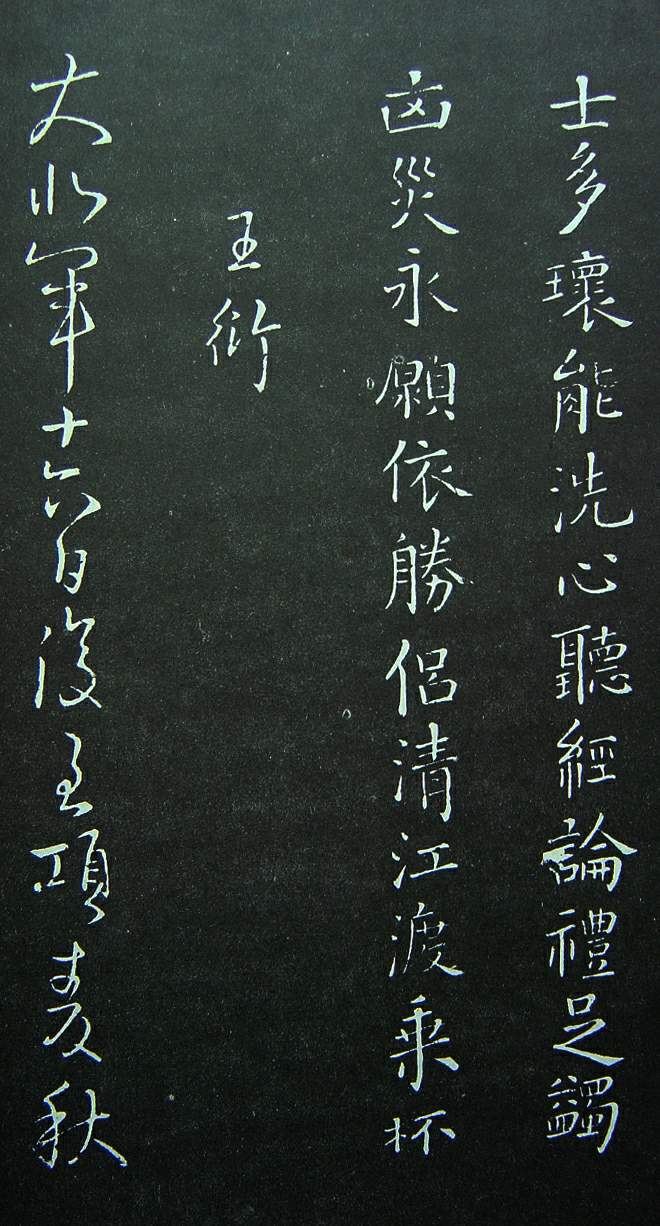 士多瓌能洗心聽經論禮足蠲
凶災永願依勝侶清江渡乘杯
王衍
大軍十六日復至項麦秋